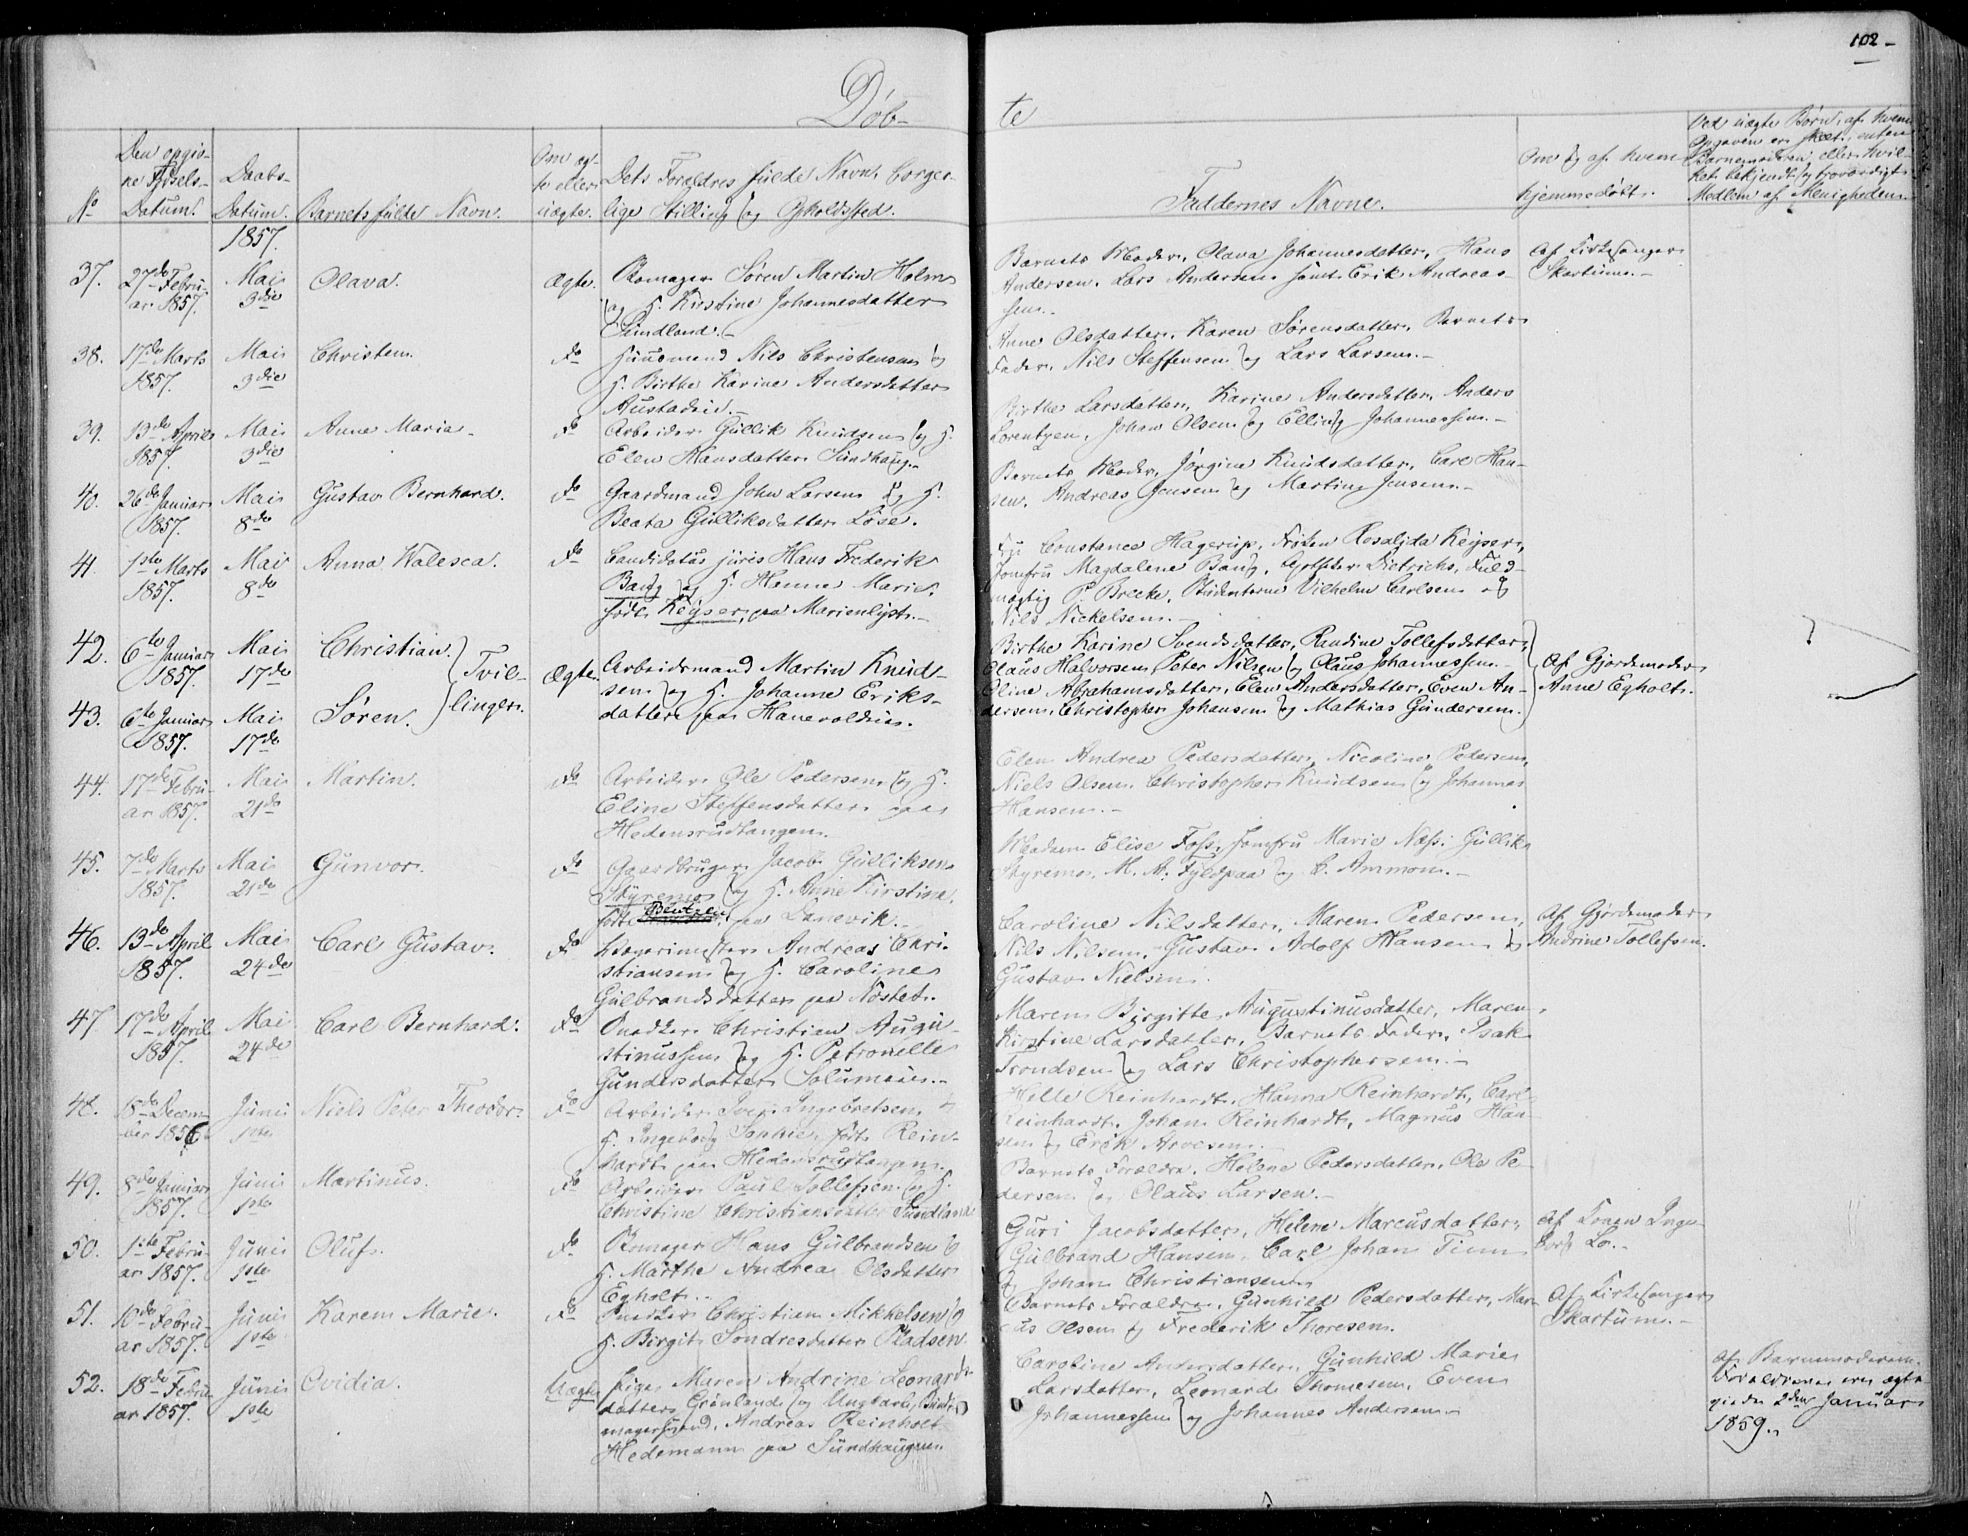 102
Døb-
te
No
Den opgiv-
ne Fødsels-
Datum.
Daabs-
Datum.
Barnets fulde Navn.
Om æg-
te eller
uægte.
Dets Forældres fulde Navn, borger-
lige Stilling og Opholdssted.
Faddernes Navne.
Om og af hvem
hjemmedøbt.
Ved uægte Børn, af hvem
Opgaven er skeet, enten
Barnemoderen, eller hvil-
ket bekjendt og troværdigt
Medlem af Menigheden.
1857.
37.
27de Febru-
ar 1857.
Mai
3die
Olava.
Ægte.
Skomager Søren Martin Holm
og H. Kirstine Johannesdatter
Sundland.
Barnets Moder, Olava Johannesdatter, Hans
Andersen, Lars Andersen samt Erik Andreas-
sen.
Af Kirkesanger
Skartum.
38.
17de Marts
1857.
Mai
3die
Christen.
do
Huusmand Nils Christensen og
H. Birthe Karine Andersdatter
Austadeie.
Anne Olsdatter, Karen Sørensdatter, Barnets
Fader, Nils Steffensen og Lars Larsen.
39.
13de April
1857.
Mai
3die
Anne Maria.
do
Arbeider Gullik Knudsen og H.
Elen Hansdatter Sundhaug.
Birthe Larsdatter, Karine Andersdatter, Anders
Lorentzen, Johan Olsen og Elling Johannessen.
40.
26de Januar
1857.
Mai
8de
Gustav Bernhard.
do
Gaardmand John Larsen og H.
Beata Gulliksdatter Løse.
Barnets Moder, Jørgine Knudsdatter, Carl Han-
sen, Andreas Jensen og Martin Jensen.
41.
1ste Marts
1857.
Mai
8de
Anna Walesca.
do
Candidatus juris Hans Frederik
Baug og H. Hanne Marie,
født Keyser, paa Marienlyst.
Fru Constance Hagerup, Frøken Rosalida Keyser,
Jomfru Magdalene Baug, Dietrichs, Fuld-
mægtig P. Brecke, Studenterne Vilhelm Carlsen og
Nils Nickelsen.
42.
6te Januar
1857.
Mai
17de
Christian.
43.
6te Januar
1857.
Mai
17de
Søren.
Tvil-
linger.
Ægte.
Arbeidsmand Martin Knud-
sen og H. Johanne Eriks-
datter paa Hanevoldeie.
Birthe Karine Svendsdatter, Randine Tollefsdatter,
Claus Halvorsen, Peter Nilsen og Olaus Johannessen.
Oline Abrahamsdatter, Elen Andersdatter, Even An-
dersen, Christopher Johansen og Mathias Gundersen.
Af Gjordemoder
Anne Egholt.
44.
17de Febru-
ar 1857.
Mai
21de
Martin.
do
Arbeider Ole Pedersen og H.
Eline Steffensdatter paa
Hedensrudtangen.
Elen Andrea Pedersdatter, Nicoline Pedersen,
Niels Olsen, Christopher Knudsen og Johannes
Hansen.
45.
7de Marts
1857.
Mai
21de
Gunvor.
do
Gaardbruger Jacob Gulliksen
Styremo og H. Anne Kirstine,
født paa Lanevik.
Madam Elise Foss, Jomfru Marie Næss, Gullik
Styremo, M. A. Fyldpaa og C. Ammon.
46.
13de April
1857.
Mai
24de
Carl Gustav.
do
Andreas Chri-
stiansen og H. Caroline
Gulbrandsdatter paa Nøstet.
Caroline Nilsdatter, Maren Pedersen,
Nils Nilsen, Gustav Adolf Hansen og
Gustav Nielsen.
Af Gjordemoder
Andrine Tollefsen.
47
17de April
1857.
Mai
24de
Carl Bernhard.
do
Snedker Christian Augu-
stinussen og H. Petronelle
Gundersdatter Solumeie.
Maren Birgitte Augustinusdatter, Maren
Kirstine Larsdatter, Barnets Fader, Isak
Trondsen og Lars Christophersen.
48.
15de Decem-
ber 1856
Juni
1ste
Niels Peter Theodor.
do
Arbeider Iver Ingebretsen &
H. Ingeborg Sophie, født Rein-
hardt paa Hedensrudtangen.
Helle Reinhardt, Hanna Reinhardt, Carl
Reinhardt, Johan Reinhardt, Magnus Han-
sen og Erik Arvesen.
49.
8de Januar
1857.
Juni
1ste
Martinus.
do
Arbeider Paul Tollefsen og H.
Christine Christiansdatter Sundland
Barnets Forældre, Helene Pedersdatter, Ole Pe-
dersen og Olaus Larsen.
50.
1ste Febru-
ar 1857.
Juni
1ste
Oluf.
do
Skomager Hans Gulbrandsen og
H. Marthe Andrea Olsdatter
Egholt.
Guri Jacobsdatter, Helene Marcusdatter,
Gulbrand Hansen, Carl Johan Tinn
og Johan Christiansen.
Af Konen Inge-
borg Lo.
51.
10de Febru-
ar 1857.
Juni
1ste
Karen Marie.
do
Snedker Christian Mikkelsen og
H. Birgit Sondresdatter Pladsen
Barnets Forældre, Gunhild Pedersdatter, Mar-
cus Olsen og Frederik Thoresen.
Af Kirkesanger
Skartum.
52.
18de Febru-
ar 1857.
Juni
1ste
Ovidia.
Uægte
Pige Maren Andrine Leonards-
datter Grønland og Ungkarl,
magersvend, Andreas Reinholt
Hedemann paa Sundhaugen.
Caroline Andersdatter, Gunhild Marie
Larsdatter, Leonard Thomesen, Even
Johannessen og Johannes Andersen.
Af Barnemoderen.
Forældrene ere ægte-
viede 2den Januar
1859.